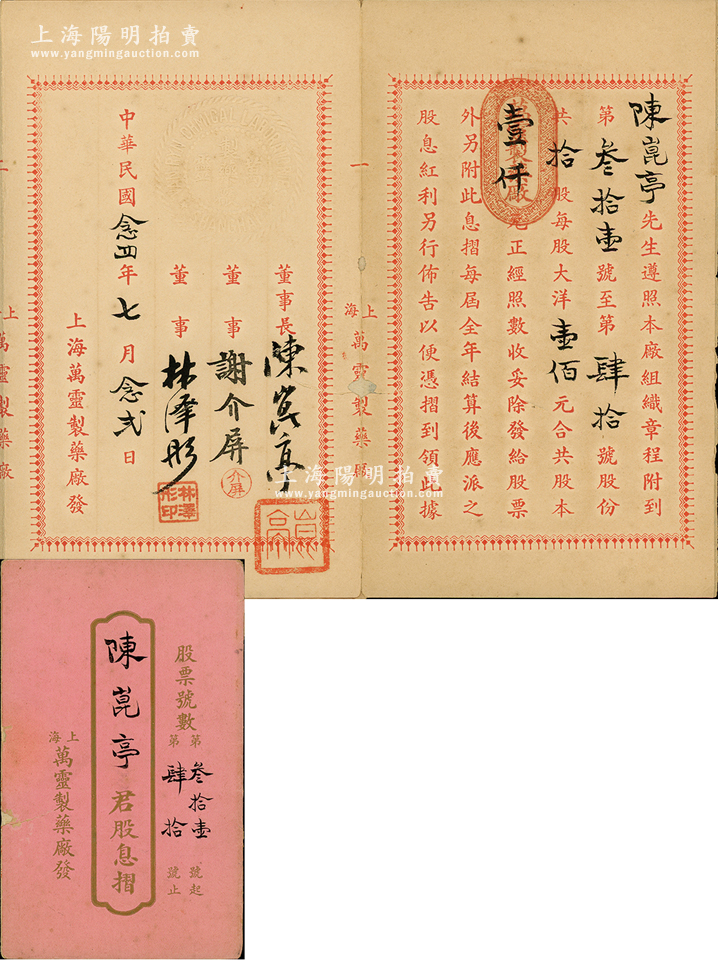 上海陽明拍賣
www.yangmingauction.com
陳崑亭先生遵照本廠組織章程附到
第叄拾壹號至第肆拾號股份
共拾股每股大洋壹佰元合共股本
壹仟元正經照數收妥除發給股票
外另附此息摺每屆全年結算後應派之
股息紅利另行佈告以便憑摺到領此據
萬靈製藥廠
一
上海萬靈製藥廠
董事長 陳崑亭
董事 謝介屏
介屏
董事 林澤彤
林澤彤印
崑亭
中華民國念四年七月念弍日
上海萬靈製藥廠發
一
上海萬靈製藥廠
上海陽明拍賣
www.yangmingauction.com
股票號數
第叄拾壹號起
第肆拾號止
陳崑亭君股息摺
上海萬靈製藥廠發